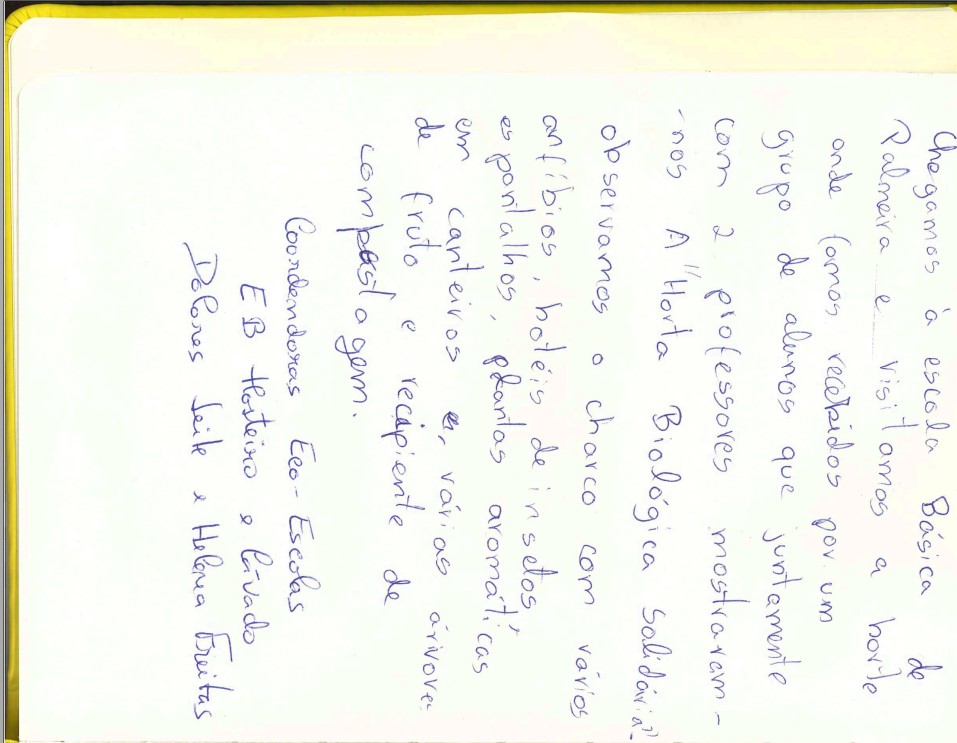 Chegamos à escola Básica de
Palmeira e visitamos a horte
onde fomos recebidos por um
grupo de alunos que juntamente
com 2 professores mostraram-
-nos A "Horta Biológica Solidária"-
observamos o charco com vários
anfíbios, hotéis de insetos,
espantalhos, plantas aromáticas
em canteiros e, várias árvores
de fruto e recipiente de
compostagem.
Coordenadoras Eco-Escolas
EB Mosteiro e Cávado
Dolores Leite e Helena Freitas